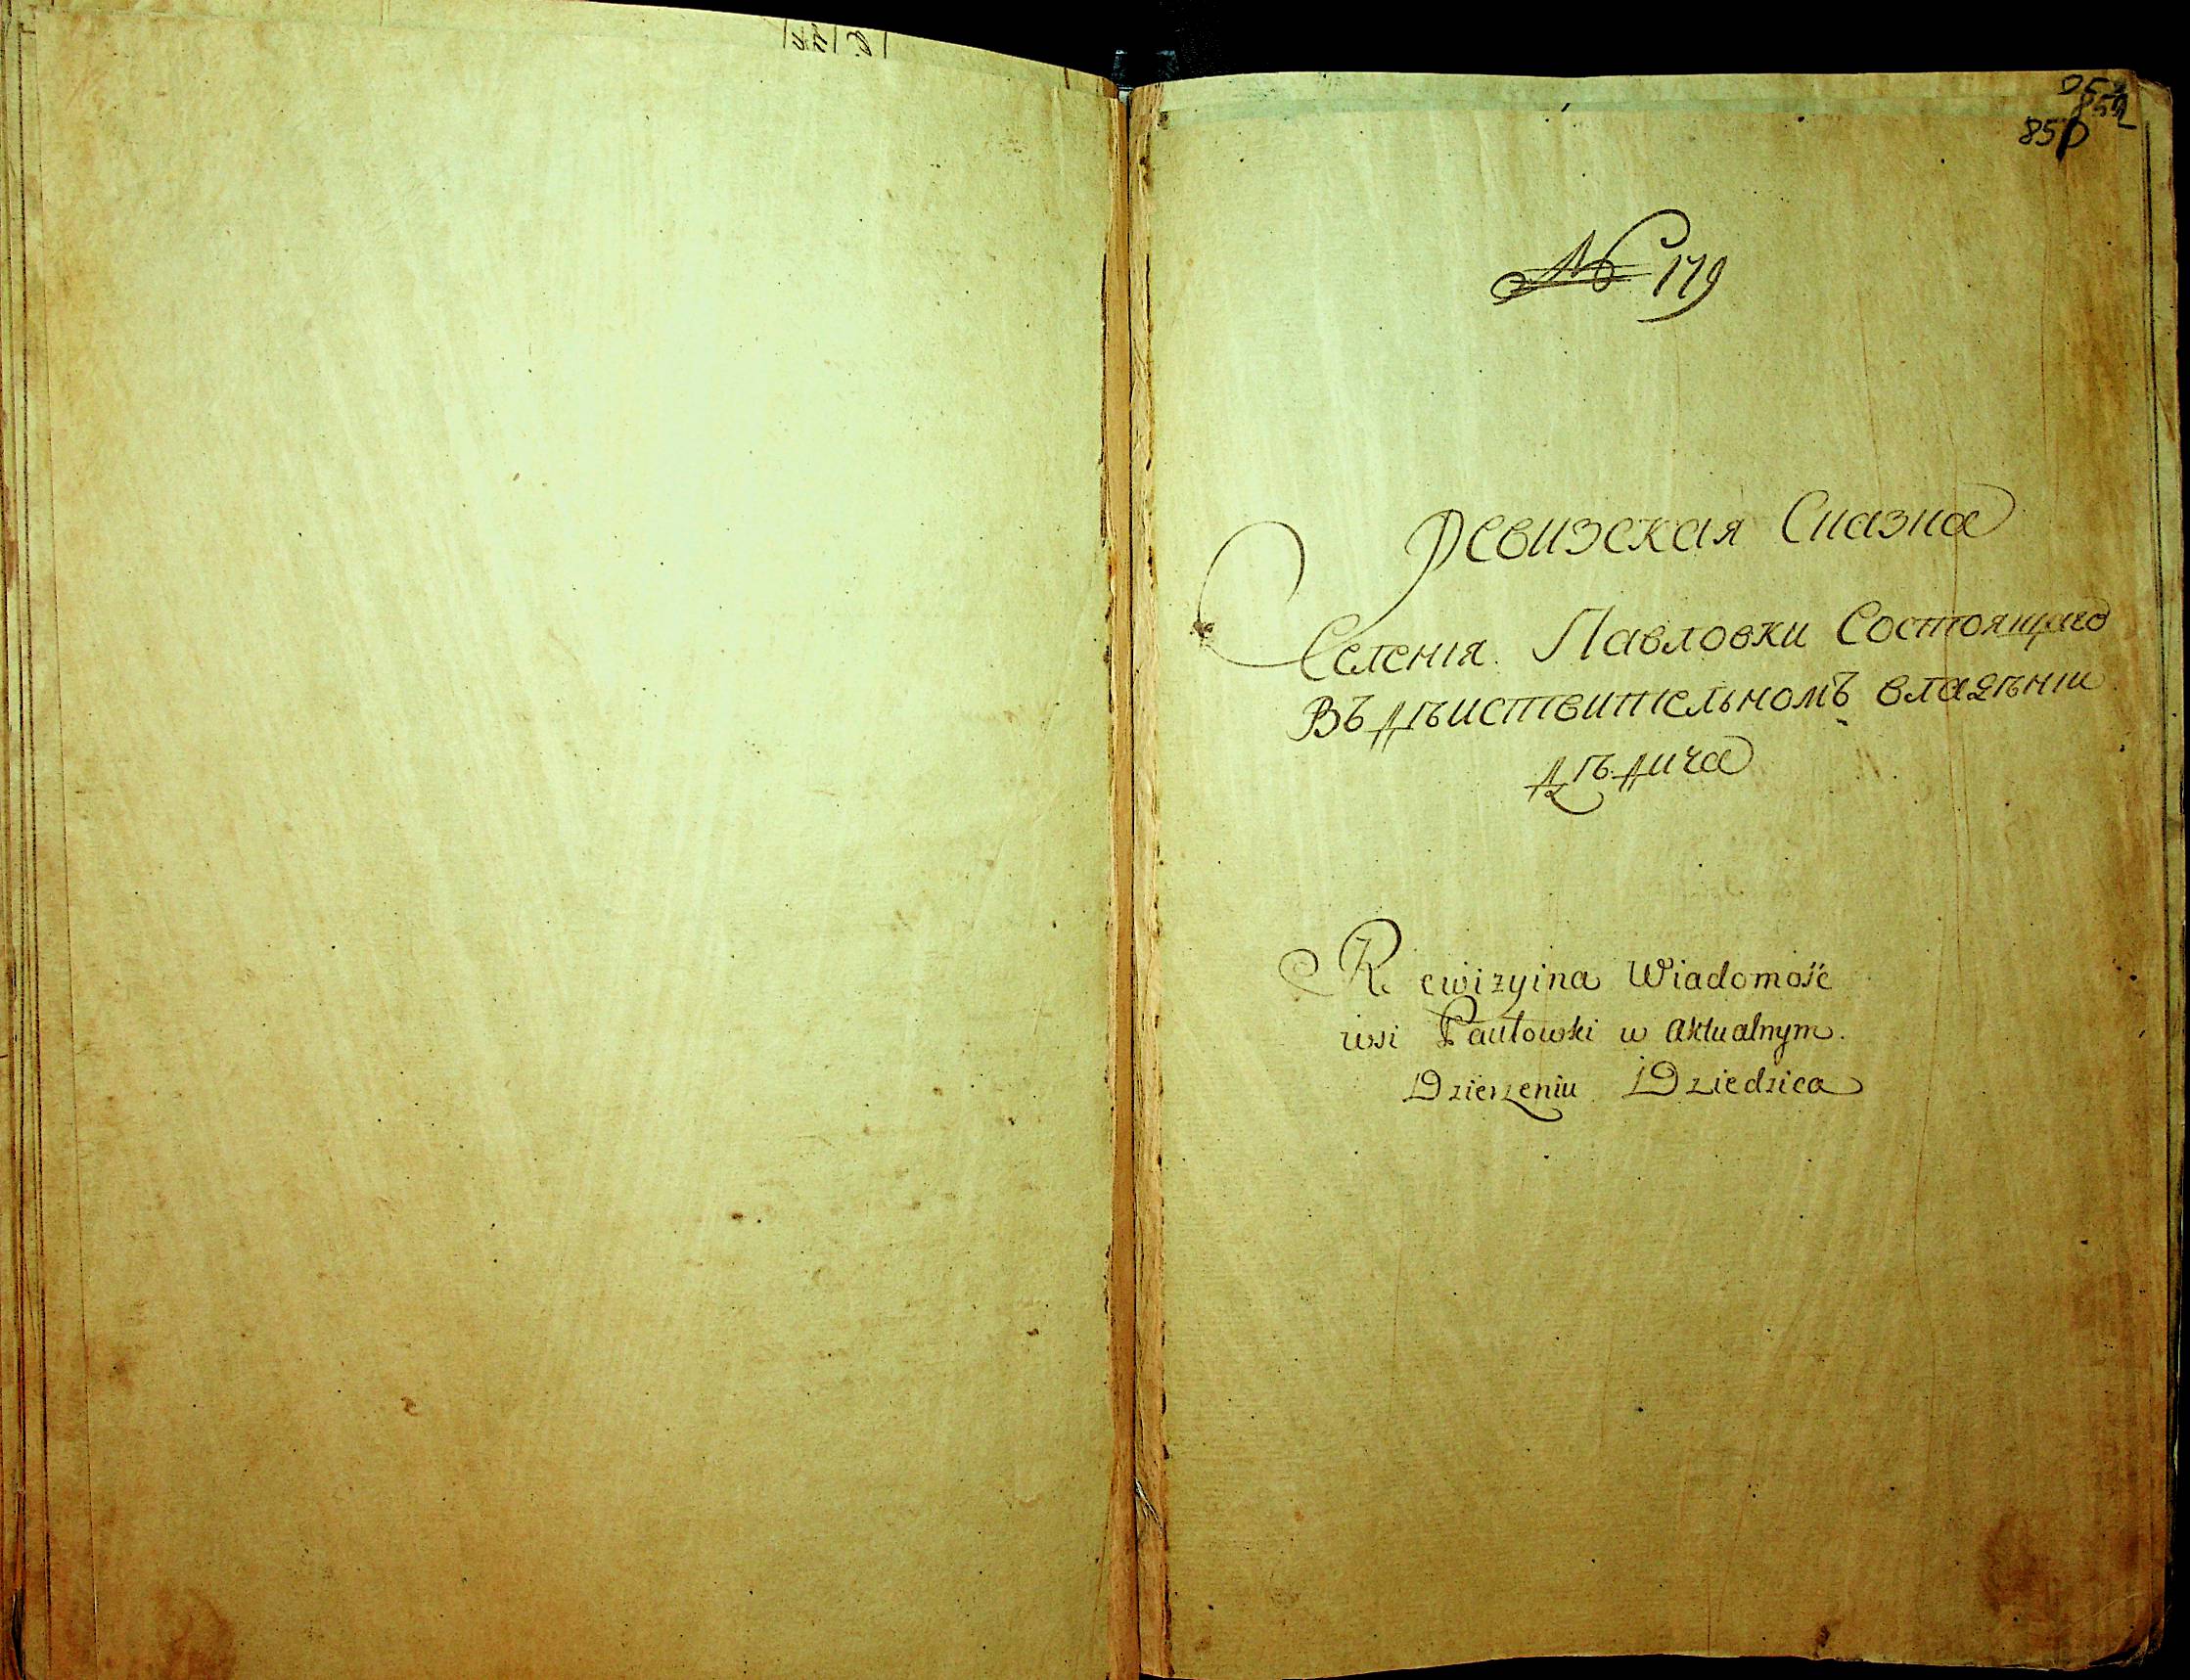 852
850
№ 179
Ревизская Сказка
Селенія Павловки Состоящаго
Въ дѣиствительномъ владѣніи
дѣдича
Rewizyina Wiadomość
wsi Pawłowki w Aktualnym.
Dzierzeniu Dziedzica